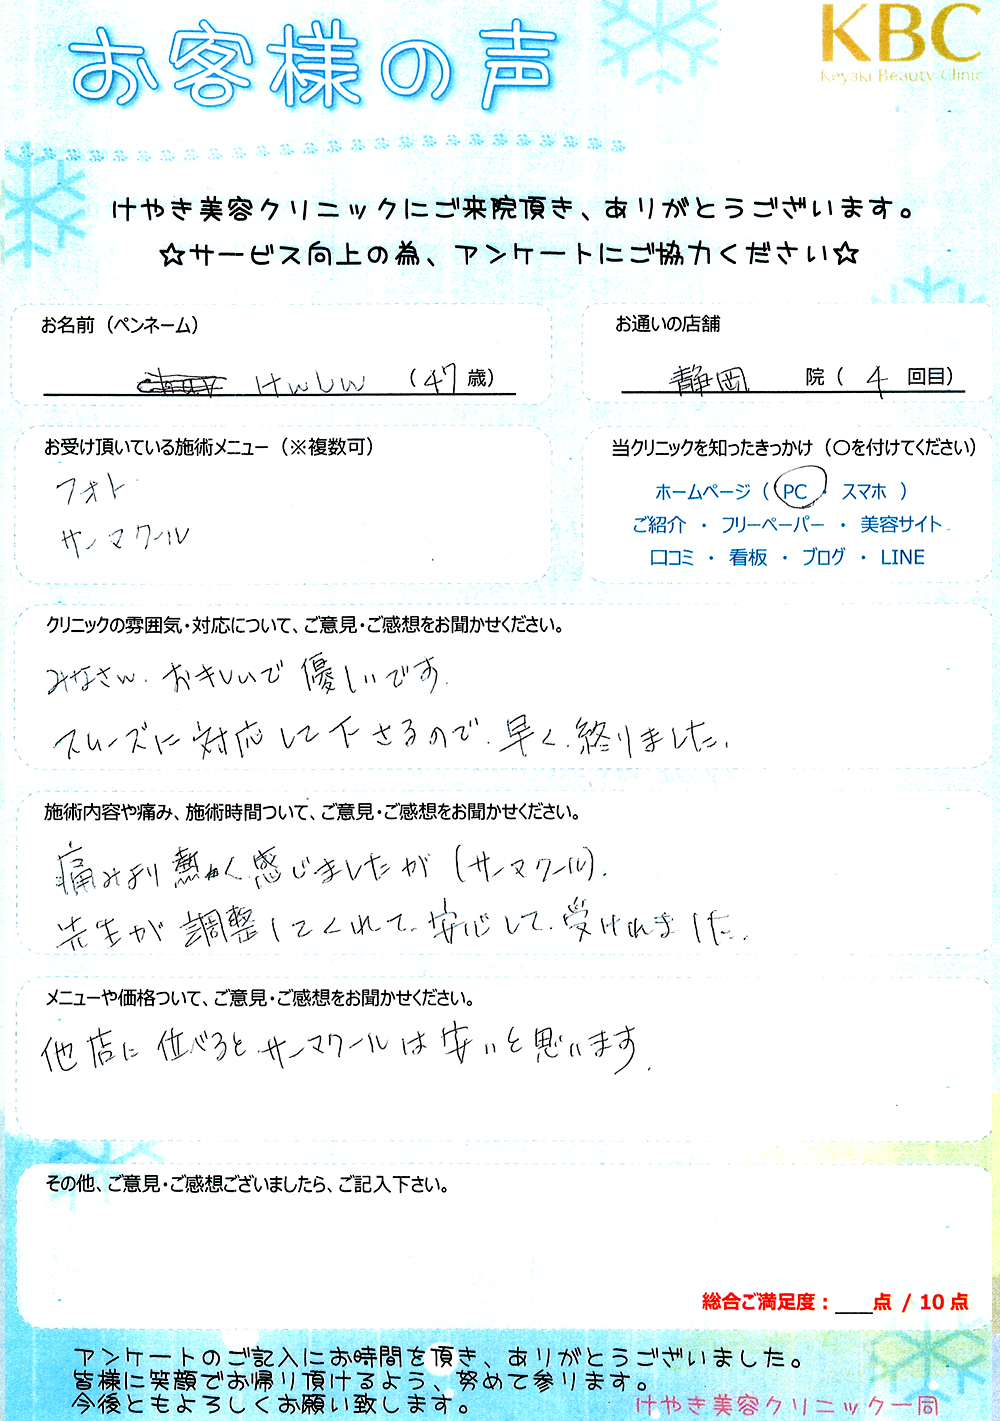 お客様の声
KBC
Keyaki Beauty Clinic
けやき美容クリニックにご来院頂き、ありがとうございます。
☆サービス向上の為、アンケートにご協力ください☆
お名前（ペンネーム）
けんしん （47歳）
お通いの店舗
静岡 院（ 4 回目）
お受け頂いている施術メニュー（※複数可）
フォト
サーマクール
当クリニックを知ったきっかけ（〇を付けてください）
ホームページ（ PC ・ スマホ ）
ご紹介 ・ フリーペーパー ・ 美容サイト
口コミ ・ 看板 ・ ブログ ・ LINE
クリニックの雰囲気・対応について、ご意見・ご感想をお聞かせください。
みなさん、おキレいで優しいです。
スムーズに対応して下さるので、早く、終りました。
施術内容や痛み、施術時間ついて、ご意見・ご感想をお聞かせください。
痛みより熱く感じましたが（サーマクール）、
先生が調整してくれて、安心して、受けれました。
メニューや価格ついて、ご意見・ご感想をお聞かせください。
他店に比べるとサーマクールは安いと思います。
その他、ご意見・ご感想ございましたら、ご記入下さい。
総合ご満足度：＿＿点 / 10点
アンケートのご記入にお時間を頂き、ありがとうございました。
皆様に笑顔でお帰り頂けるよう、努めて参ります。
今後ともよろしくお願い致します。
けやき美容クリニック一同